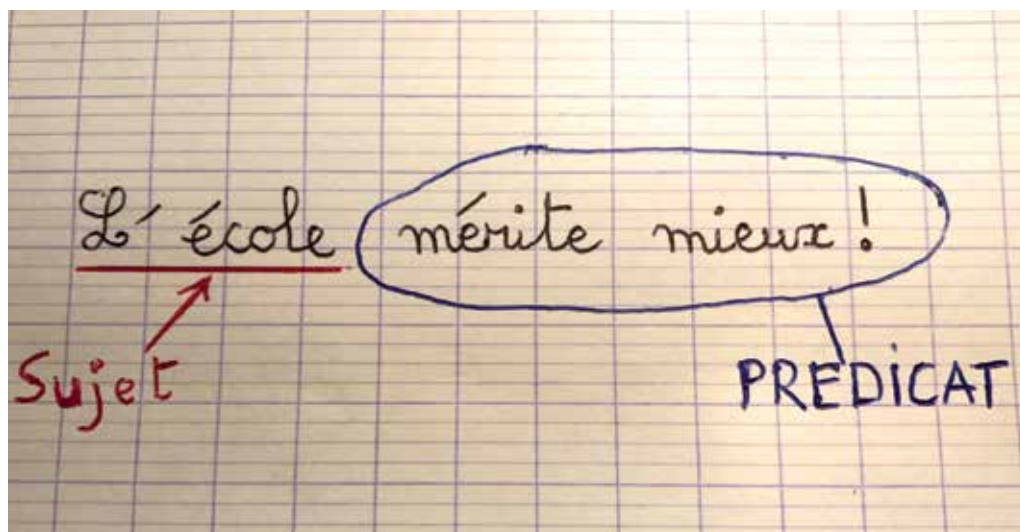 L'école mérite mieux !
Sujet PREDICAT